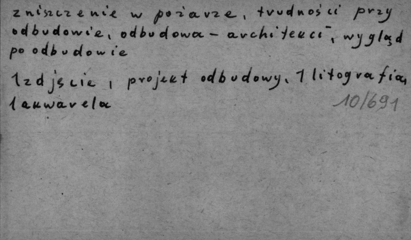 zniszczenie w pożarze, trudności przy
odbudowie, odbudowa - architekci, wygląd
po odbudowie
1 zdjęcie, projekt odbudowy, 1 litografia,
1 akwarela
10/691